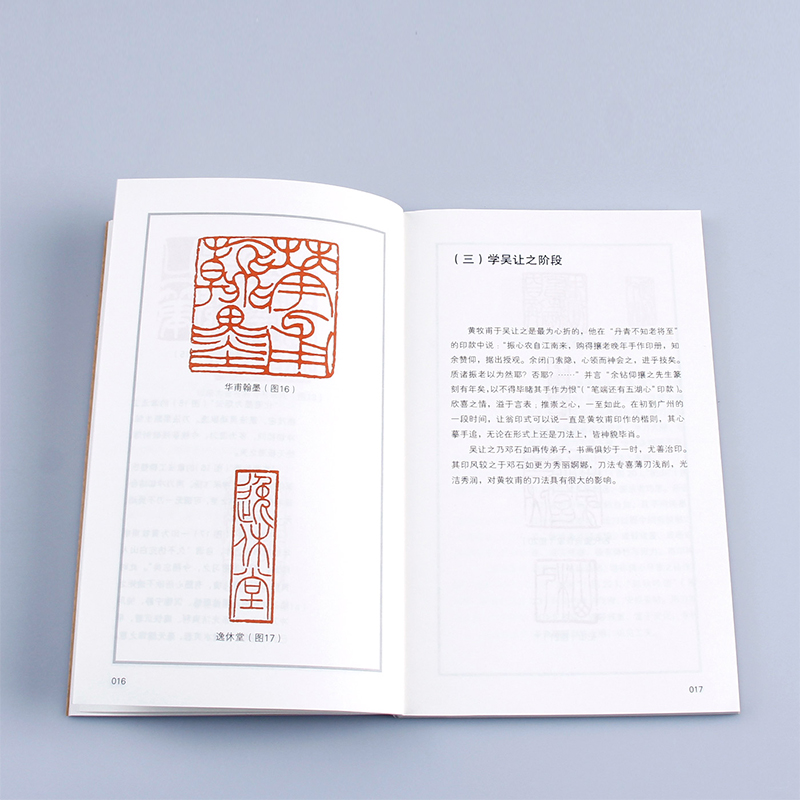 华甫翰墨（图16）
逸休堂
逸休堂（图17）
016
（三）学吴让之阶段
黄牧甫于吴让之是最为心折的，他在“丹青不知老将至”
的印款中说：“振心农自江南来，购得攘老晚年手作印册，知
余赞仰，据出授观。余闭门索隐，心领而神会之，进乎技矣。
质诸振老以为然耶？否耶？……”并言“余钻仰攘之先生篆
刻有年矣，以不得毕睹其手作为恨”（“笔端还有五湖心”印款）。
欣喜之情，溢于言表；推崇之心，一至如此。在初到广州的
一段时间，让翁印式可以说一直是黄牧甫印作的楷则，其心
摹手追，无论在形式上还是刀法上，皆神貌毕肖。
吴让之乃邓石如再传弟子，书画俱妙于一时，尤善治印。
其印风较之于邓石如更为秀丽婀娜，刀法专喜薄刃浅削，光
洁秀润，对黄牧甫的刀法具有很大的影响。
017